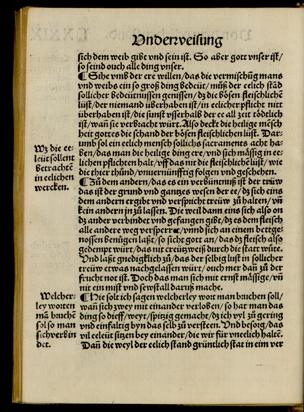 Vnderweisung
sich dem weib gibt vnd sein ist. So aber gott vnser ist/
so seind auch alle ding vnser.
¶ Sihe vmb der ere willen/das die vermischũg mans
vnd weibs ein so groß ding bedeüt/můß der eelich stãd
sollicher bedeütnüssen geniessen/dz die bösen fleischliche
lüst/der niemand überhaben ist/in eelicher pflicht nitt
überhaben ist/die sunst vsserhalb der ee all zeit tödelich
ist/wañ sie verbracht würt. Also deckt die heilige mensch
heit gottes die schand der bösen fleischlichen lust. Dar
umb sol ein eelich mensch sollichs sacraments acht ha
ben/das man die heilige ding ere/vnd sich mässig in ee
lichen pflichten halt/vff das nit die fleischliche lüst/wie
die thier thůnd/vnuernünfftig folgen vnd geschehen.
Wz die ee-
leüt sollent
betrachtẽ
in eelichen
wercken.
¶ Zů dem andern/das es ein verbüntnuß ist der trüw
das ist der grund vnd gantzes wesen der ee/dz sich eins
dem andern ergibt vnd verspricht treüw zů halten/vñ
kein andern in zů lassen. Die weil dann eins sich also an
dz ander verbindet vnd gefangen gibt/dz es dem fleisch
alle andere weg versperrt/vnnd sich an einem bettge-
nossen benügen laßt/so sicht gott an/das dz fleisch also
gedempt würt/das nit creützweiß durch die statt wüte.
Vnd laßt gnedigklich zů/das der selbig lust in sollicher
treüw etwas nachgelassen würt/ouch mer dañ zů der
frucht not ist. Doch das man sich mit ernst mässige/vñ
nit ein mist vnd sewstall daruß mache.
Welcher-
ley worten
mã bruchẽ
sol so man
sich verbin
det.
¶ Hie solt ich sagen welcherley wort man bruchen soll/
wañ sich zwey mit einander verloben/so hat man das
ding so dieff/weyt/spitzig gemacht/dz ich vyl zů gering
vnd einfaltig byn das selb zů versteen. Vnd besorg/das
vil eeleüt sitzen bey einander/die wir für vneelich haltẽ.
Dañ die weyl der eelich stand gründtlich stat in eim ver